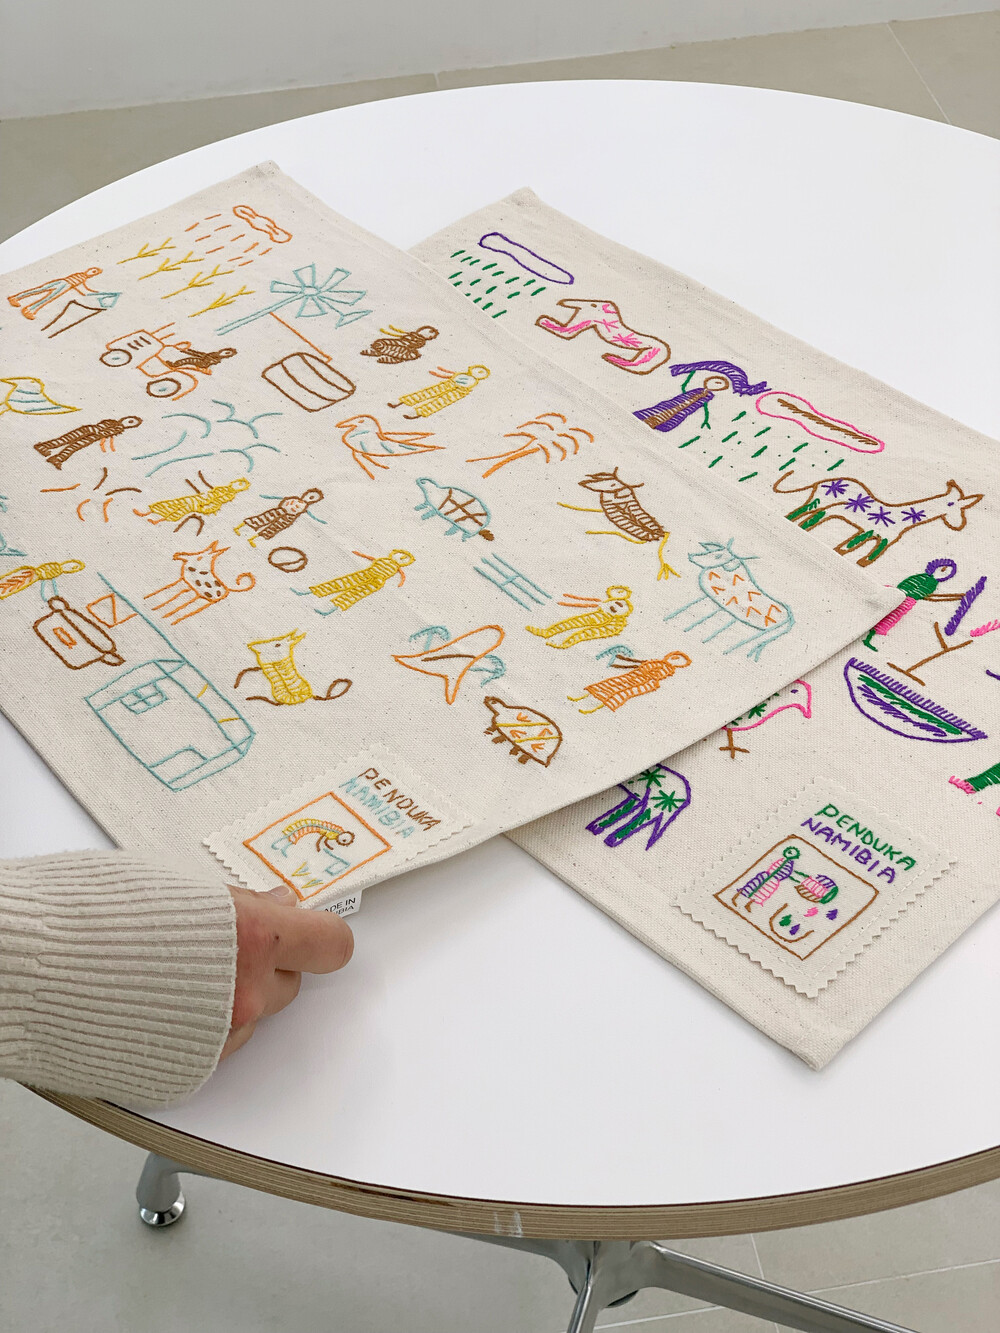 PENDUKA
NAMIBIA
ADE IN
IBIA
PENDUKA
NAMIBIA